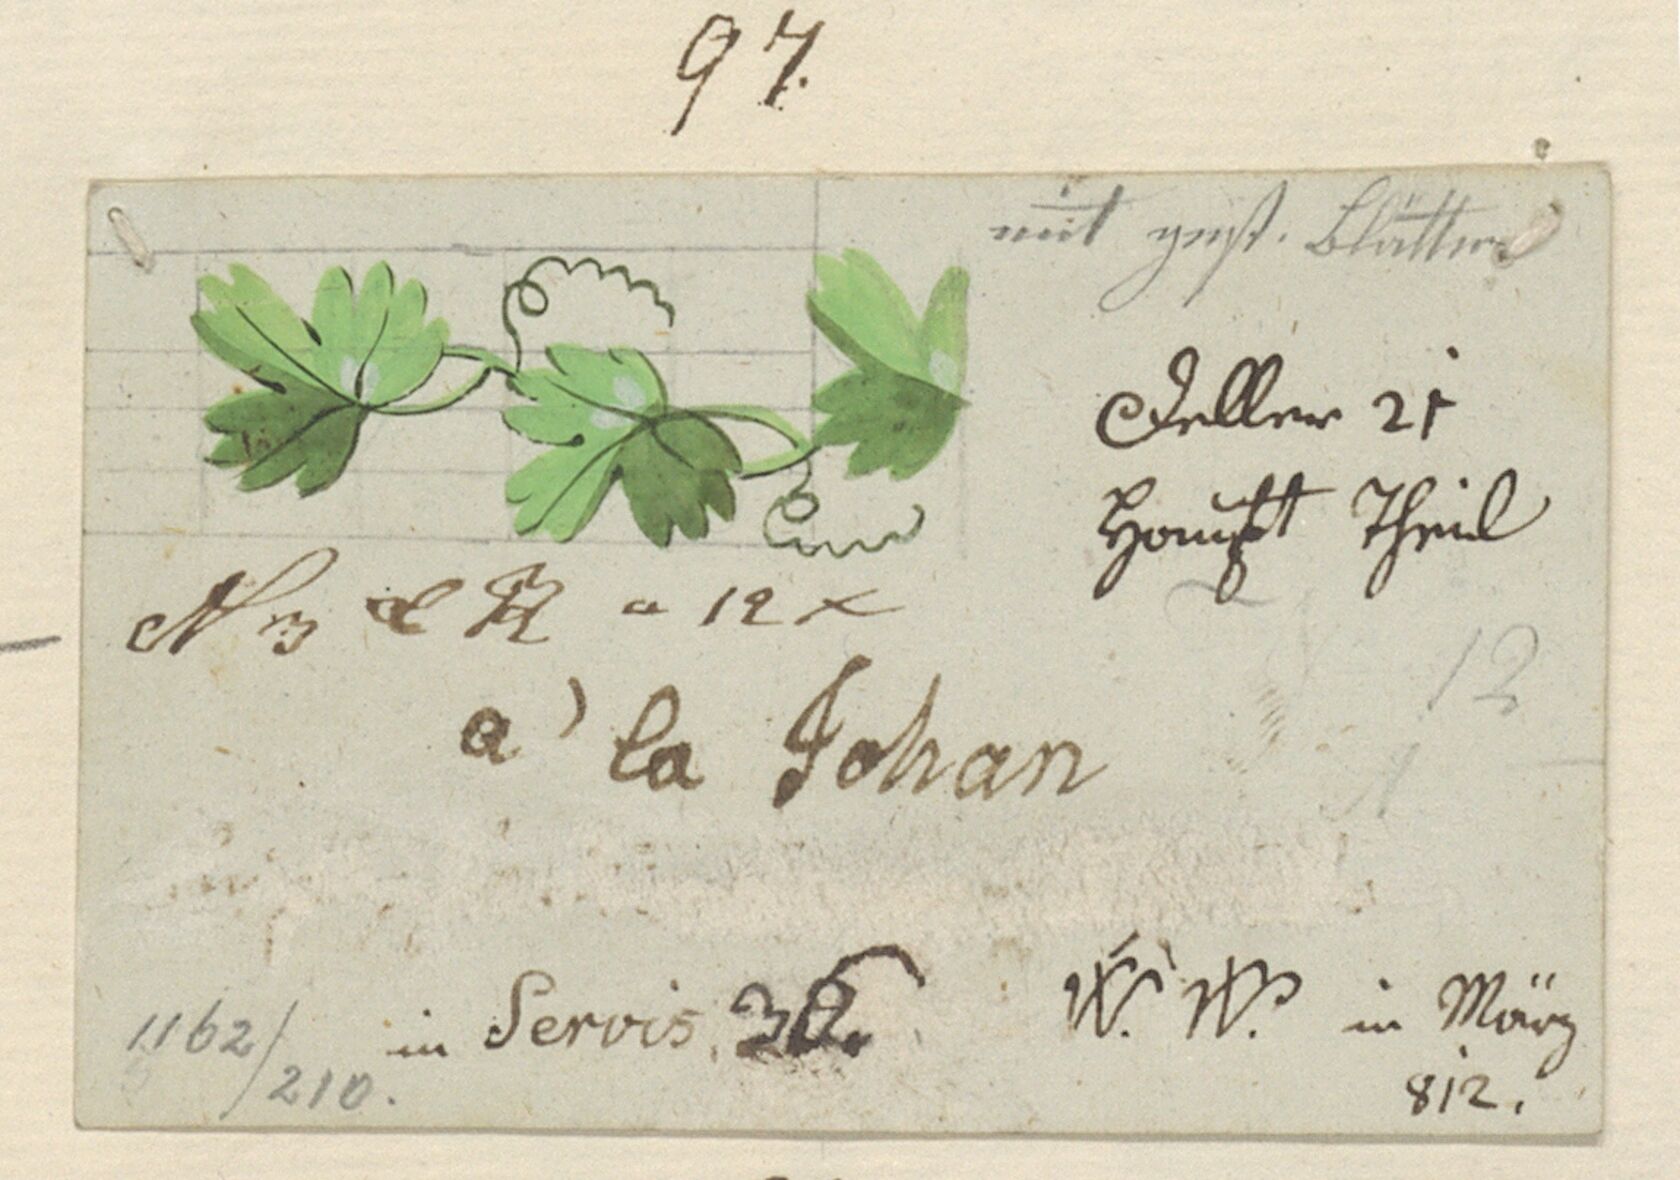 97.
mit gest. Blätter
Teller 21
Haupt Theil
N 3 a 12 x
a' la Johan
12
1162/210.
in Servis 36.
W. W. in März
812.